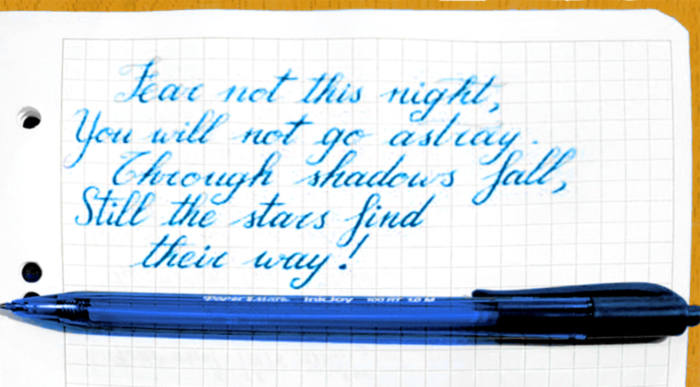 Fear not this night,
You will not go astray.
Through shadows fall,
Still the stars find
their way!
PaperMate InkJoy 100 RT 1.0 M